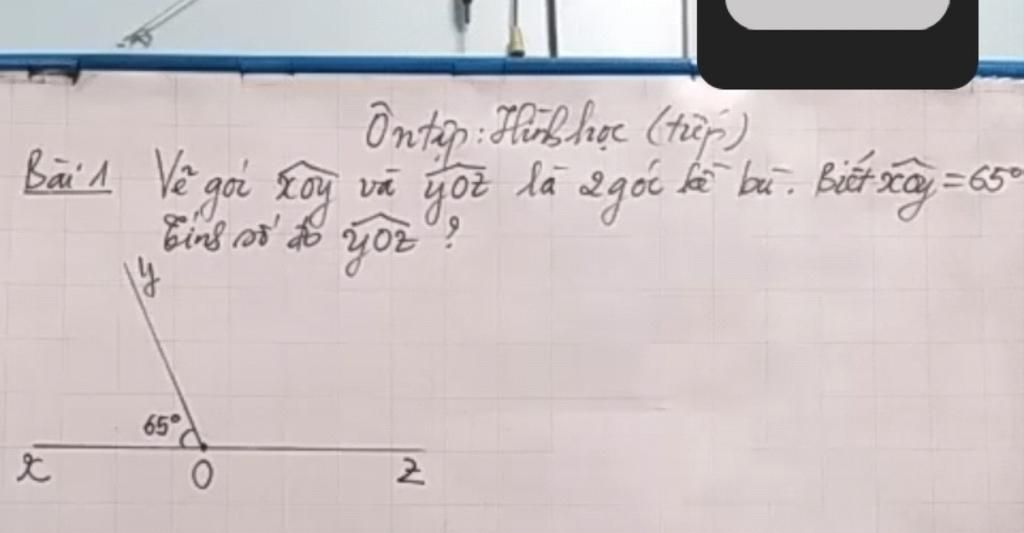 Ôn tập: Hình học (tiếp)
Bài 1 Vẽ gói xOy và yOz là 2 góc kề bù. Biết xOy = 65°
Tính số đo yOz ?
y
65°
x O z